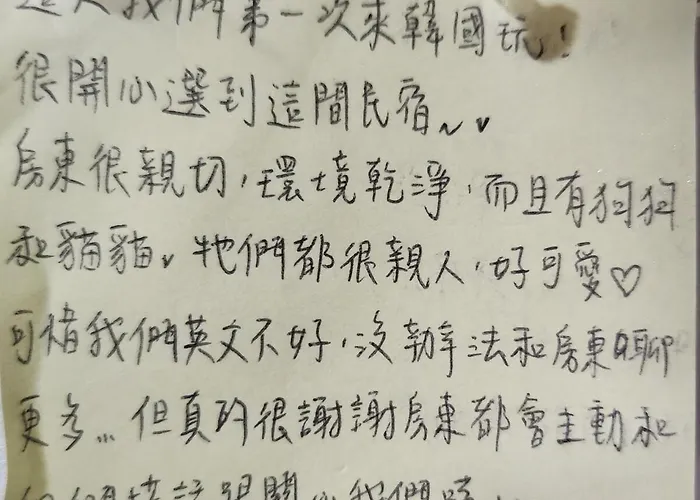 這是我們第一次來韓國玩!
很開心選到這間民宿~
房東很親切,環境乾淨,而且有狗狗
和貓貓,牠們都很親人,好可愛♡
可惜我們英文不好,沒辦法和房東聊
更多...但真的很謝謝房東都會主動和
我們